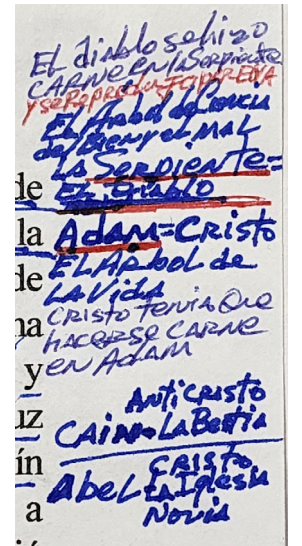 El diablo se hizo
CARNE en la Serpiente
y se Reprodujo por EVA
El Arbol de Ciencia
del Bien y el MAL
LA Serpiente=
de EL DIABLO
la Adam=Cristo
de EL Arbol de
LA Vida
na Cristo tenia Que
hacerse CARNE
y en Adam
Anticristo
uz CAIN=La Bestia
ín Cristo
Abel La Iglesia
a Novia